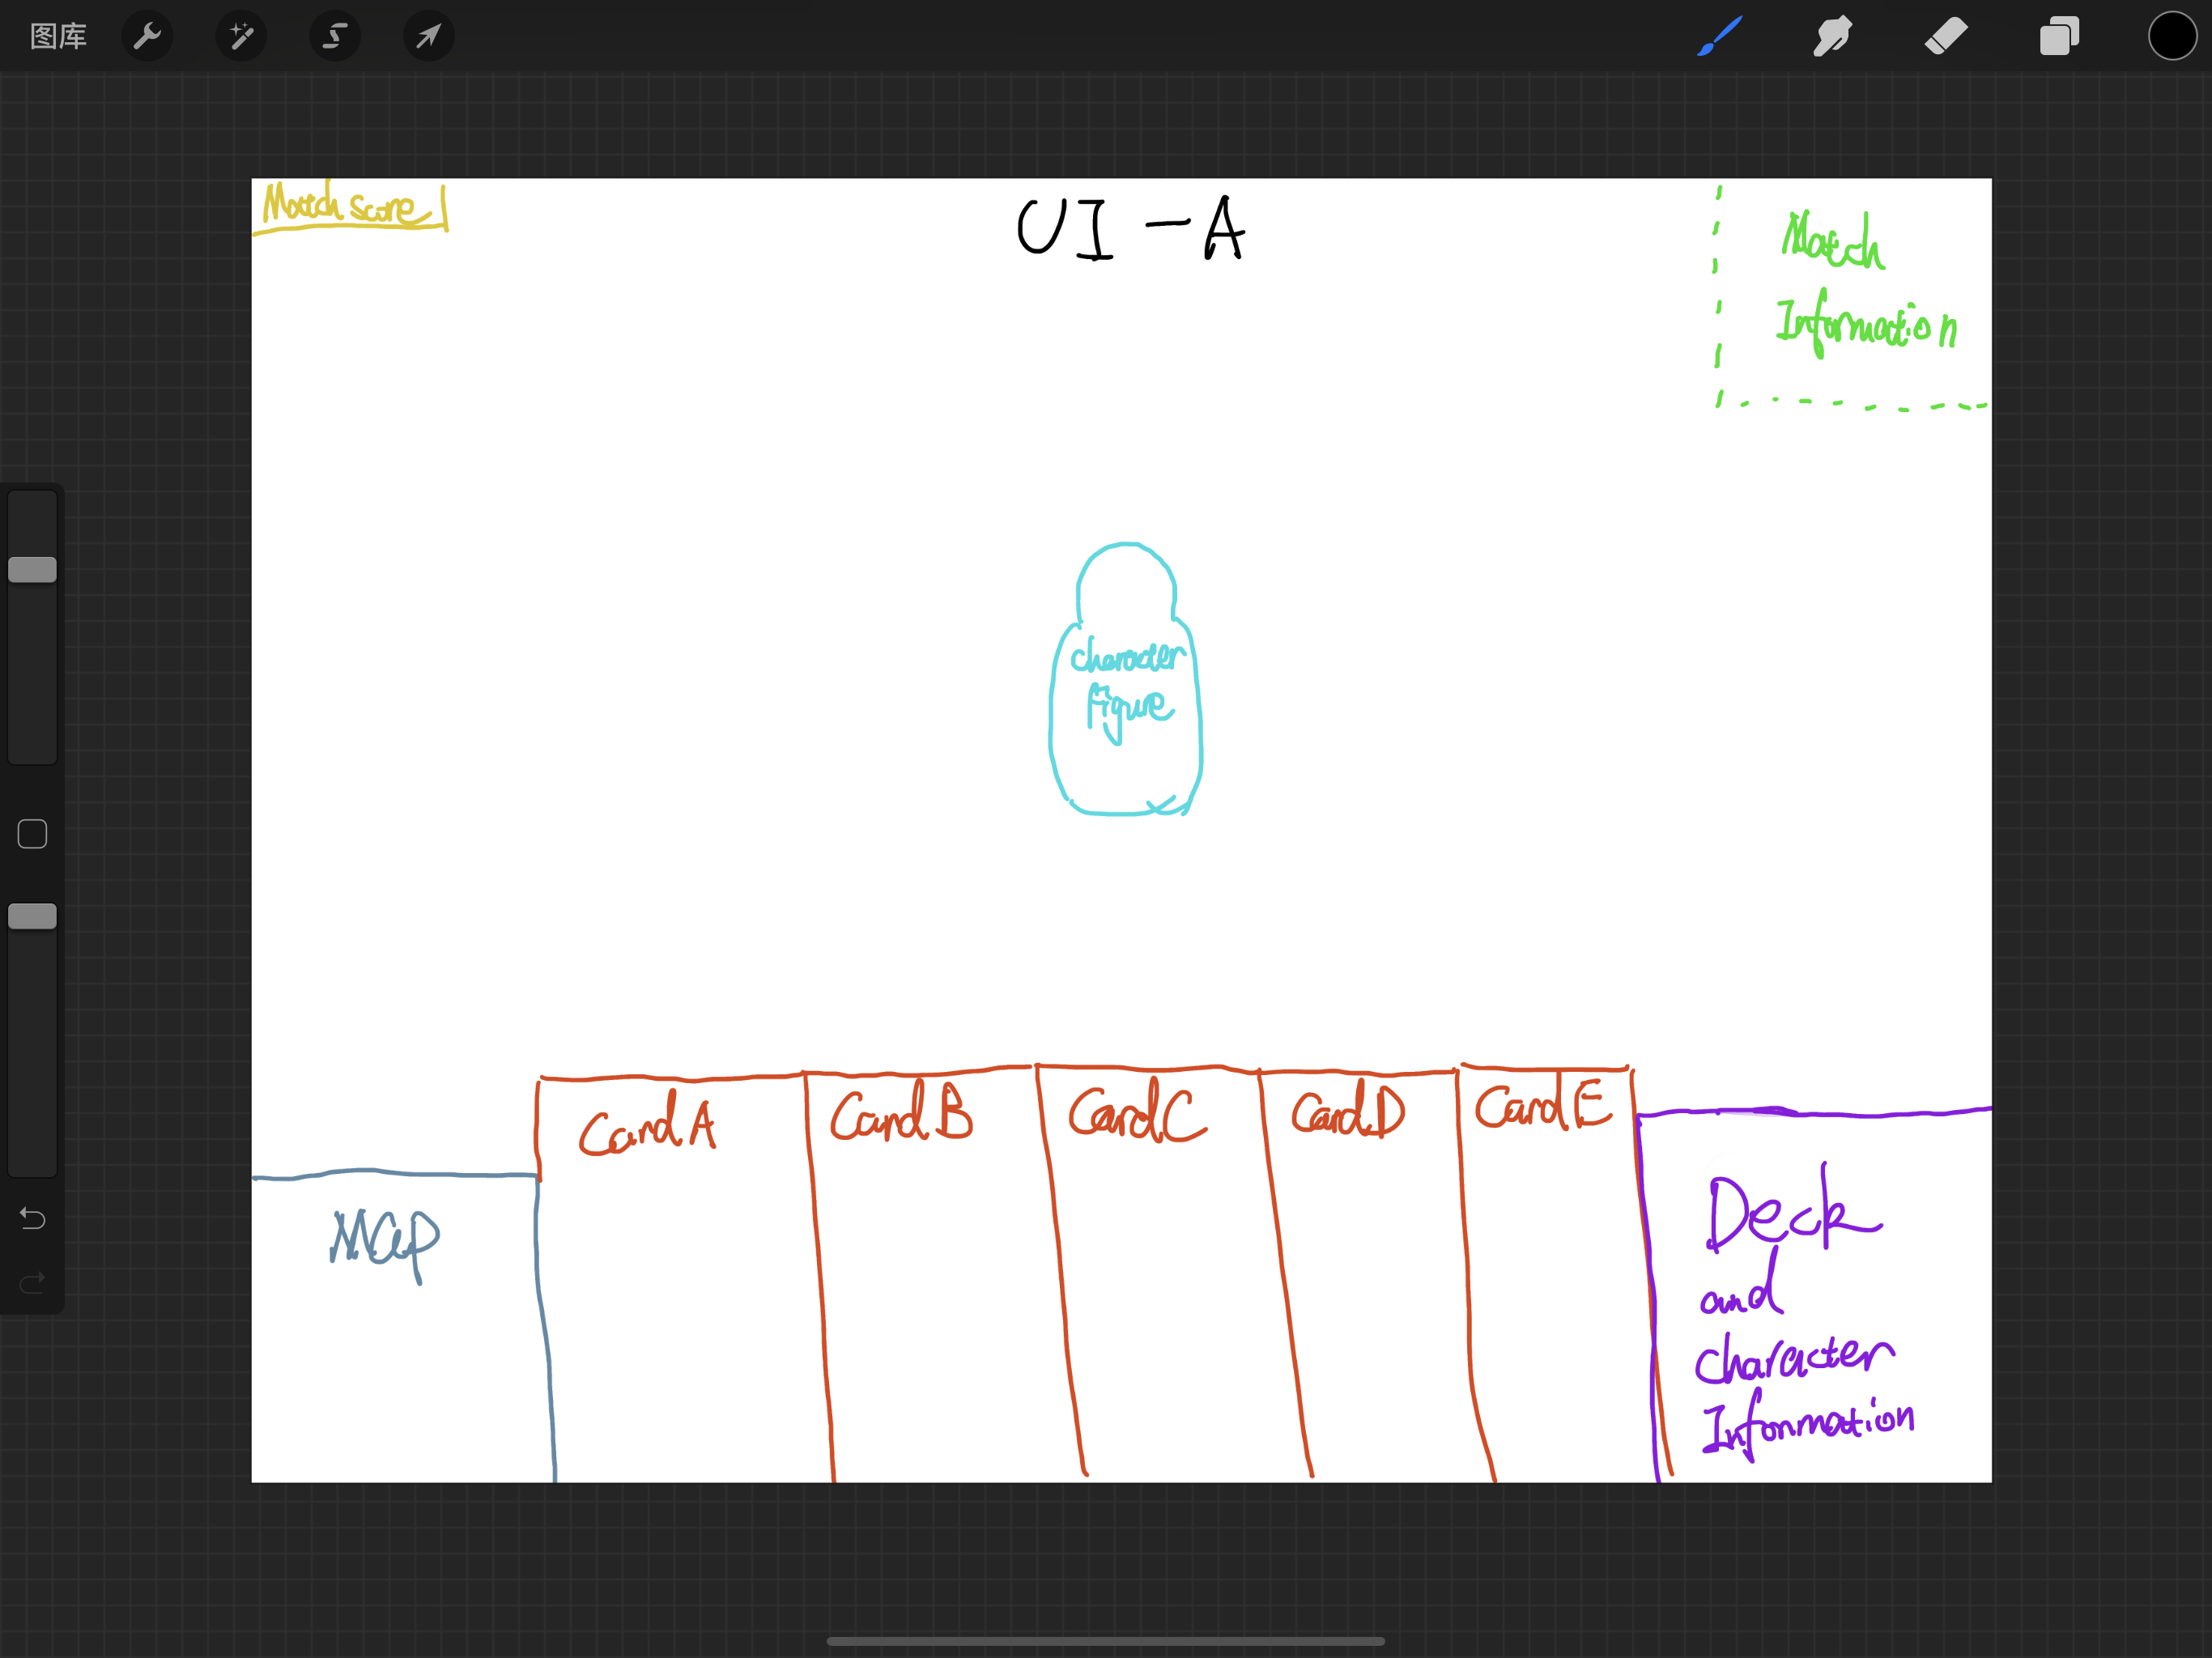 图库
Match score
UI-A
Match
Information
Character
Figure
Card A
Card B
Card C
Card D
Card E
Map
Deck
and
Character
Information